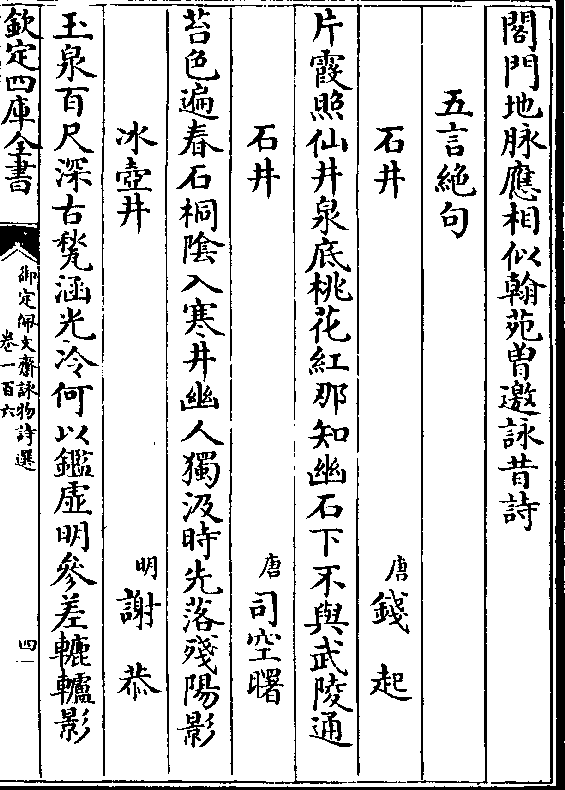 閣門地脉應相似翰苑曽邀詠昔詩
五言絶句
石井 唐 錢起
片霞照仙井泉底桃花紅那知幽石下不與武陵通
石井 唐 司空曙
苔色遍春石桐陰入寒井幽人獨汲時先落殘陽影
冰壺井 明 謝恭
玉泉百尺深古甃涵光冷何以鑑虚明參差轆轤影
欽定四庫全書
御定佩文齋詠物詩選
卷一百六
四